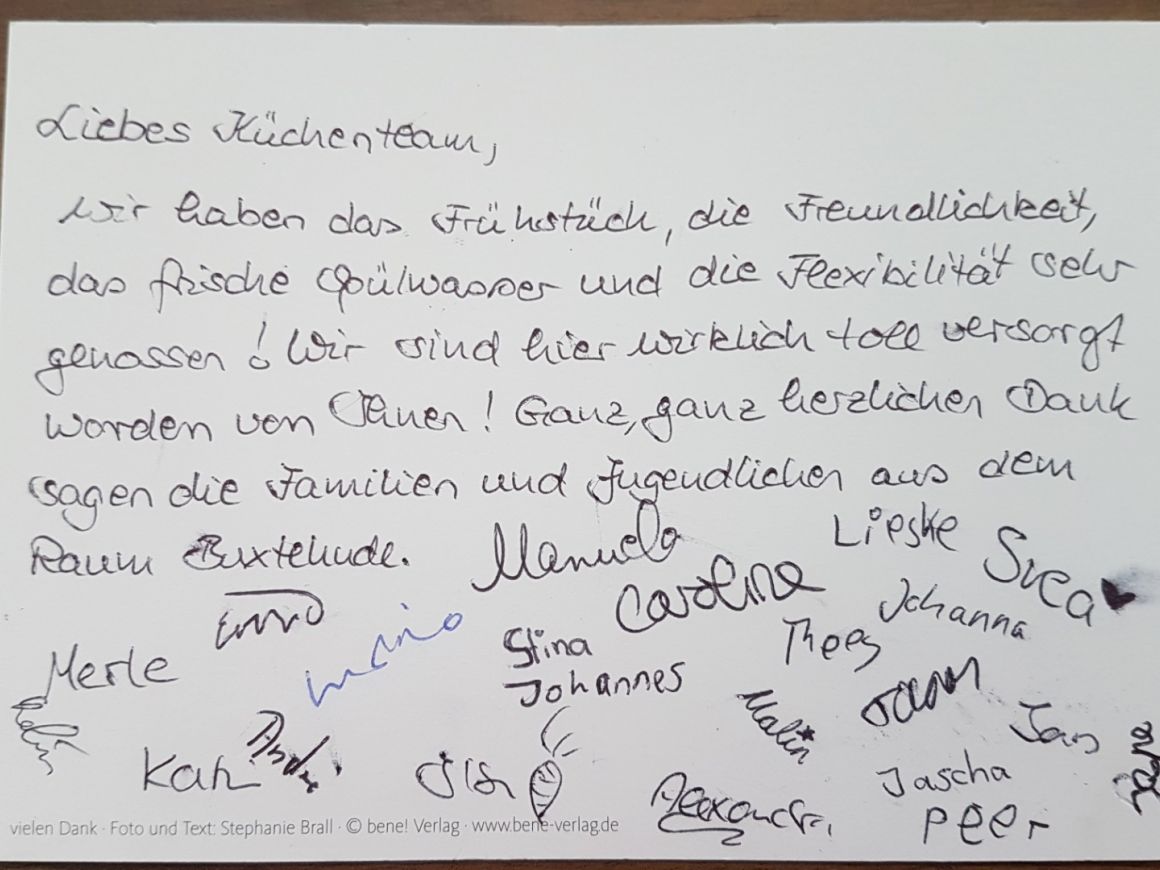 Liebes Küchenteam,
wir haben das Frühstück, die Freundlichkeit,
das frische Spülwasser und die Flexibilität sehr
genossen! Wir sind hier wirklich toll versorgt
worden von Ihnen! Ganz, ganz herzlichen Dank
sagen die Familien und Jugendlichen aus dem
Raum Buxtehude.
Manuela
Lieske
Svea
Carolina
Johanna
Enno
Stina
Thees
Merle
Johannes
Malin
Jan
Jascha
Peer
vielen Dank · Foto und Text: Stephanie Brall · © bene! Verlag · www.bene-verlag.de